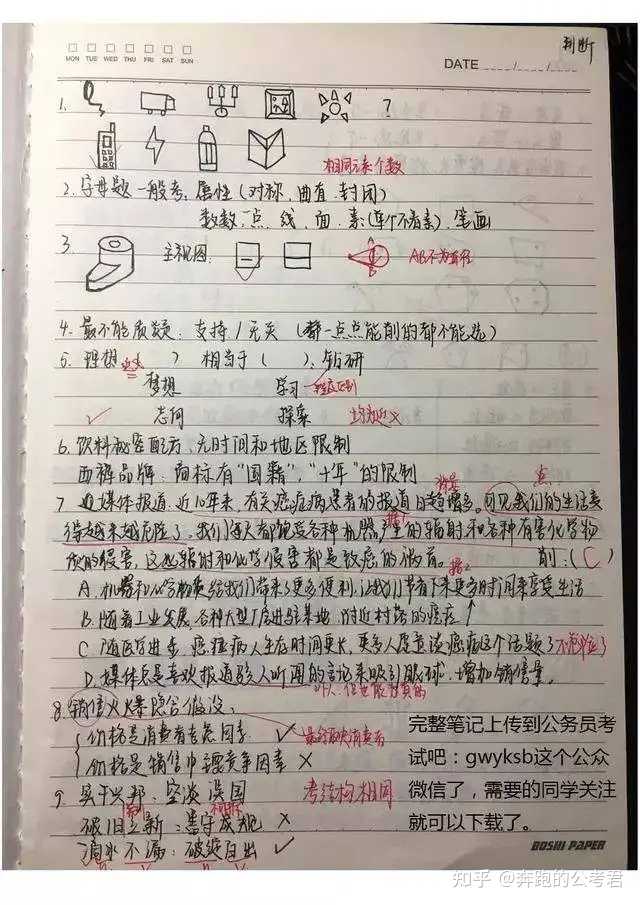 判断
MON TUE WED THU FRI SAT SUN
DATE
1.
?
相同元素个数
2.字母题一般考:属性(对称.曲直.封闭)
数数:点.线.面.素(单个不看素).笔画
3
主视图:
AB不为直径
4.最不能质疑:支持/无关(带一点点能削的都不能选)
5.理想( )相当于( ):钻研
梦想 学习
志向 探索
6.饮料秘密配方:无时间和地区限制
西裤品牌:商标有“国籍”,“十年”的限制
7 近媒体报道:近10年来,有关癌症病患者的报道日趋增多。可见我们的生活变
得越来越危险了,我们每天都饱受各种机器产生的辐射和各种有害化学物
质的侵害,这些辐射和化学侵害都是致癌的祸首。 削:(C)
A.机器和化学物质给我们带来了更多便利,让我们节省下来更多时间来享受生活
B.随着工业发展,各种大型厂房进驻某地,附近村落的癌症↑
C 随医学进步,癌症病人生存时间更长,更多人愿意谈癌症这个话题了
D.媒体总是喜欢报道骇人听闻的言论来吸引眼球,增加销售量。
8.销售火爆隐含假设:
价格是消费者考虑因素 ✓
价格是销售中主要竞争因素 ×
9 实干兴邦:空谈误国 考结构相同
破旧立新:墨守成规 ×
滴水不漏:破绽百出 ✓
完整笔记上传到公务员考
试吧:gwyksb这个公众
微信了,需要的同学关注
就可以下载了。
BOSHI PAPER
知乎 @奔跑的公考君